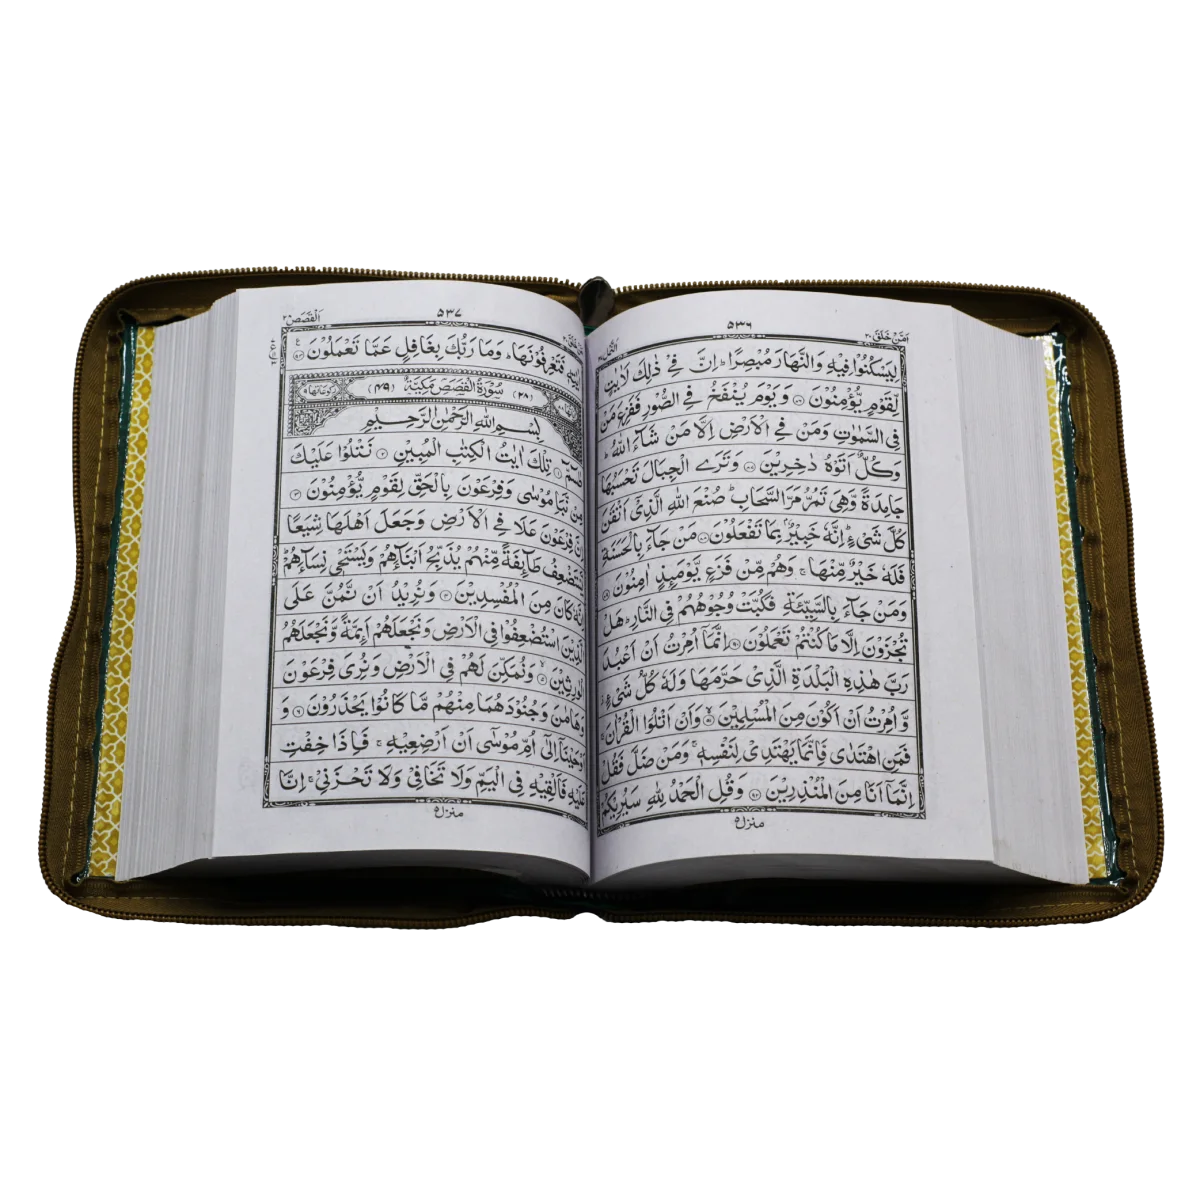 اَمَّنْ خَلَقَ ٢٠
۵۳۶
النَّمْل ٢٧
لِيَسْكُنُوْا فِيْهِ وَالنَّهَارَ مُبْصِرًا ؕ اِنَّ فِيْ ذٰلِكَ لَاٰيٰتٍ
لِّقَوْمٍ يُّؤْمِنُوْنَ ۝٨٦ وَيَوْمَ يُنْفَخُ فِي الصُّوْرِ فَفَزِعَ مَنْ
فِي السَّمٰوٰتِ وَمَنْ فِي الْاَرْضِ اِلَّا مَنْ شَآءَ اللّٰهُ ؕ
وَكُلٌّ اَتَوْهُ دٰخِرِيْنَ ۝٨٧ وَتَرَى الْجِبَالَ تَحْسَبُهَا
جَامِدَةً وَّهِيَ تَمُرُّ مَرَّ السَّحَابِ ؕ صُنْعَ اللّٰهِ الَّذِيْٓ اَتْقَنَ
كُلَّ شَيْءٍ ؕ اِنَّهٗ خَبِيْرٌۢ بِمَا تَفْعَلُوْنَ ۝٨٨ مَنْ جَآءَ بِالْحَسَنَةِ
فَلَهٗ خَيْرٌ مِّنْهَا ۚ وَهُمْ مِّنْ فَزَعٍ يَّوْمَئِذٍ اٰمِنُوْنَ ۝٨٩
وَمَنْ جَآءَ بِالسَّيِّئَةِ فَكُبَّتْ وُجُوْهُهُمْ فِي النَّارِ ؕ هَلْ
تُجْزَوْنَ اِلَّا مَا كُنْتُمْ تَعْمَلُوْنَ ۝٩٠ اِنَّمَآ اُمِرْتُ اَنْ اَعْبُدَ
رَبَّ هٰذِهِ الْبَلْدَةِ الَّذِيْ حَرَّمَهَا وَلَهٗ كُلُّ شَيْءٍ ؗ
وَّاُمِرْتُ اَنْ اَكُوْنَ مِنَ الْمُسْلِمِيْنَ ۝٩١ وَاَنْ اَتْلُوَا الْقُرْاٰنَ ۚ
فَمَنِ اهْتَدٰى فَاِنَّمَا يَهْتَدِيْ لِنَفْسِهٖ ۚ وَمَنْ ضَلَّ فَقُلْ
اِنَّمَآ اَنَا مِنَ الْمُنْذِرِيْنَ ۝٩٢ وَقُلِ الْحَمْدُ لِلّٰهِ سَيُرِيْكُمْ
منزل ۵
۵۳۷
اَلْقَصَص ٢٨
اٰيٰتِهٖ فَتَعْرِفُوْنَهَا ؕ وَمَا رَبُّكَ بِغَافِلٍ عَمَّا تَعْمَلُوْنَ ۝٩٣
(٢٨) سُوْرَةُ الْقَصَصِ مَكِّيَّةٌ (٤٩)
بِسْمِ اللّٰهِ الرَّحْمٰنِ الرَّحِيْمِ
طٰسٓمّٓ ۝١ تِلْكَ اٰيٰتُ الْكِتٰبِ الْمُبِيْنِ ۝٢ نَتْلُوْا عَلَيْكَ
مِنْ نَّبَاِ مُوْسٰى وَفِرْعَوْنَ بِالْحَقِّ لِقَوْمٍ يُّؤْمِنُوْنَ ۝٣
اِنَّ فِرْعَوْنَ عَلَا فِي الْاَرْضِ وَجَعَلَ اَهْلَهَا شِيَعًا
يَّسْتَضْعِفُ طَآئِفَةً مِّنْهُمْ يُذَبِّحُ اَبْنَآءَهُمْ وَيَسْتَحْيٖ نِسَآءَهُمْ ؕ
اِنَّهٗ كَانَ مِنَ الْمُفْسِدِيْنَ ۝٤ وَنُرِيْدُ اَنْ نَّمُنَّ عَلَى
الَّذِيْنَ اسْتُضْعِفُوْا فِي الْاَرْضِ وَنَجْعَلَهُمْ اَئِمَّةً وَّنَجْعَلَهُمُ
الْوٰرِثِيْنَ ۝٥ وَنُمَكِّنَ لَهُمْ فِي الْاَرْضِ وَنُرِيَ فِرْعَوْنَ
وَهَامٰنَ وَجُنُوْدَهُمَا مِنْهُمْ مَّا كَانُوْا يَحْذَرُوْنَ ۝٦ وَ
اَوْحَيْنَآ اِلٰٓى اُمِّ مُوْسٰٓى اَنْ اَرْضِعِيْهِ ۚ فَاِذَا خِفْتِ
عَلَيْهِ فَاَلْقِيْهِ فِي الْيَمِّ وَلَا تَخَافِيْ وَلَا تَحْزَنِيْ ۚ اِنَّا
منزل ۵